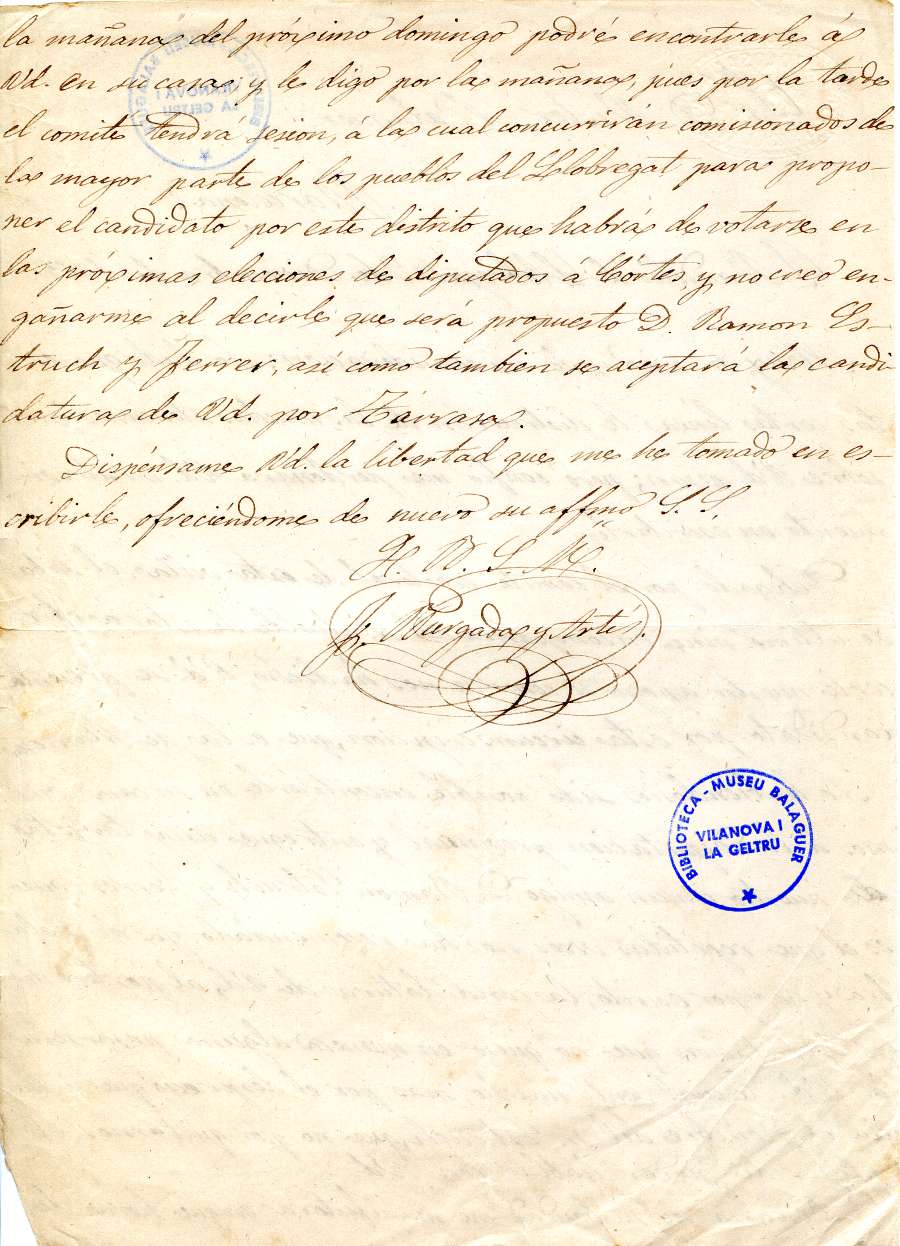 la mañana del próximo domingo podré encontrarle á
Vd. en su casa; y le digo por la mañana, pues por la tarde
el comité tendrá sesion, á la cual concurrirán comisionados de
la mayor parte de los pueblos del Llobregat para propo-
ner el candidato por este distrito que habrá de votarse en
las próximas elecciones de diputados á Córtes y, no creo en-
gañarme al decirle que será propuesto D. Ramon Es-
truch y Ferrer, así como tambien se aceptará la candi-
datura de Vd. por Tarrasa.
Dispénsame Vd. la libertad que me he tomado en es-
cribirle, ofreciéndome de nuevo su affmo S. S.
Q. B. S. M.
Burgada y Artís.
BIBLIOTECA - MUSEU BALAGUER
VILANOVA I
LA GELTRU